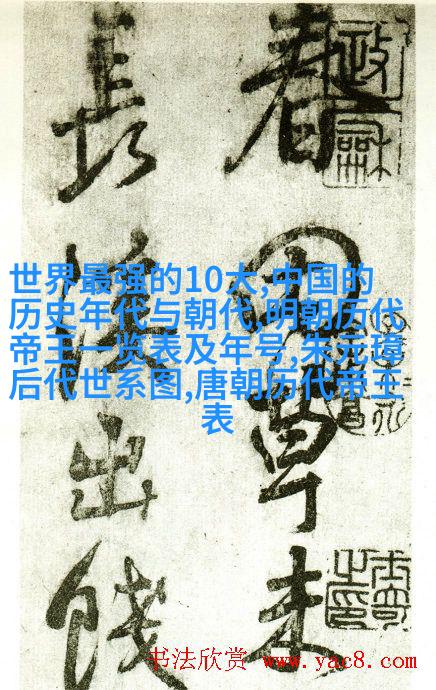 田草未
長溪出
世界最强的10大,中国的
历史年代与朝代,明朝历代
帝王一览表及年号,朱元璋
后代世系图,唐朝历代帝王
表
书法欣赏 www.yac8.com